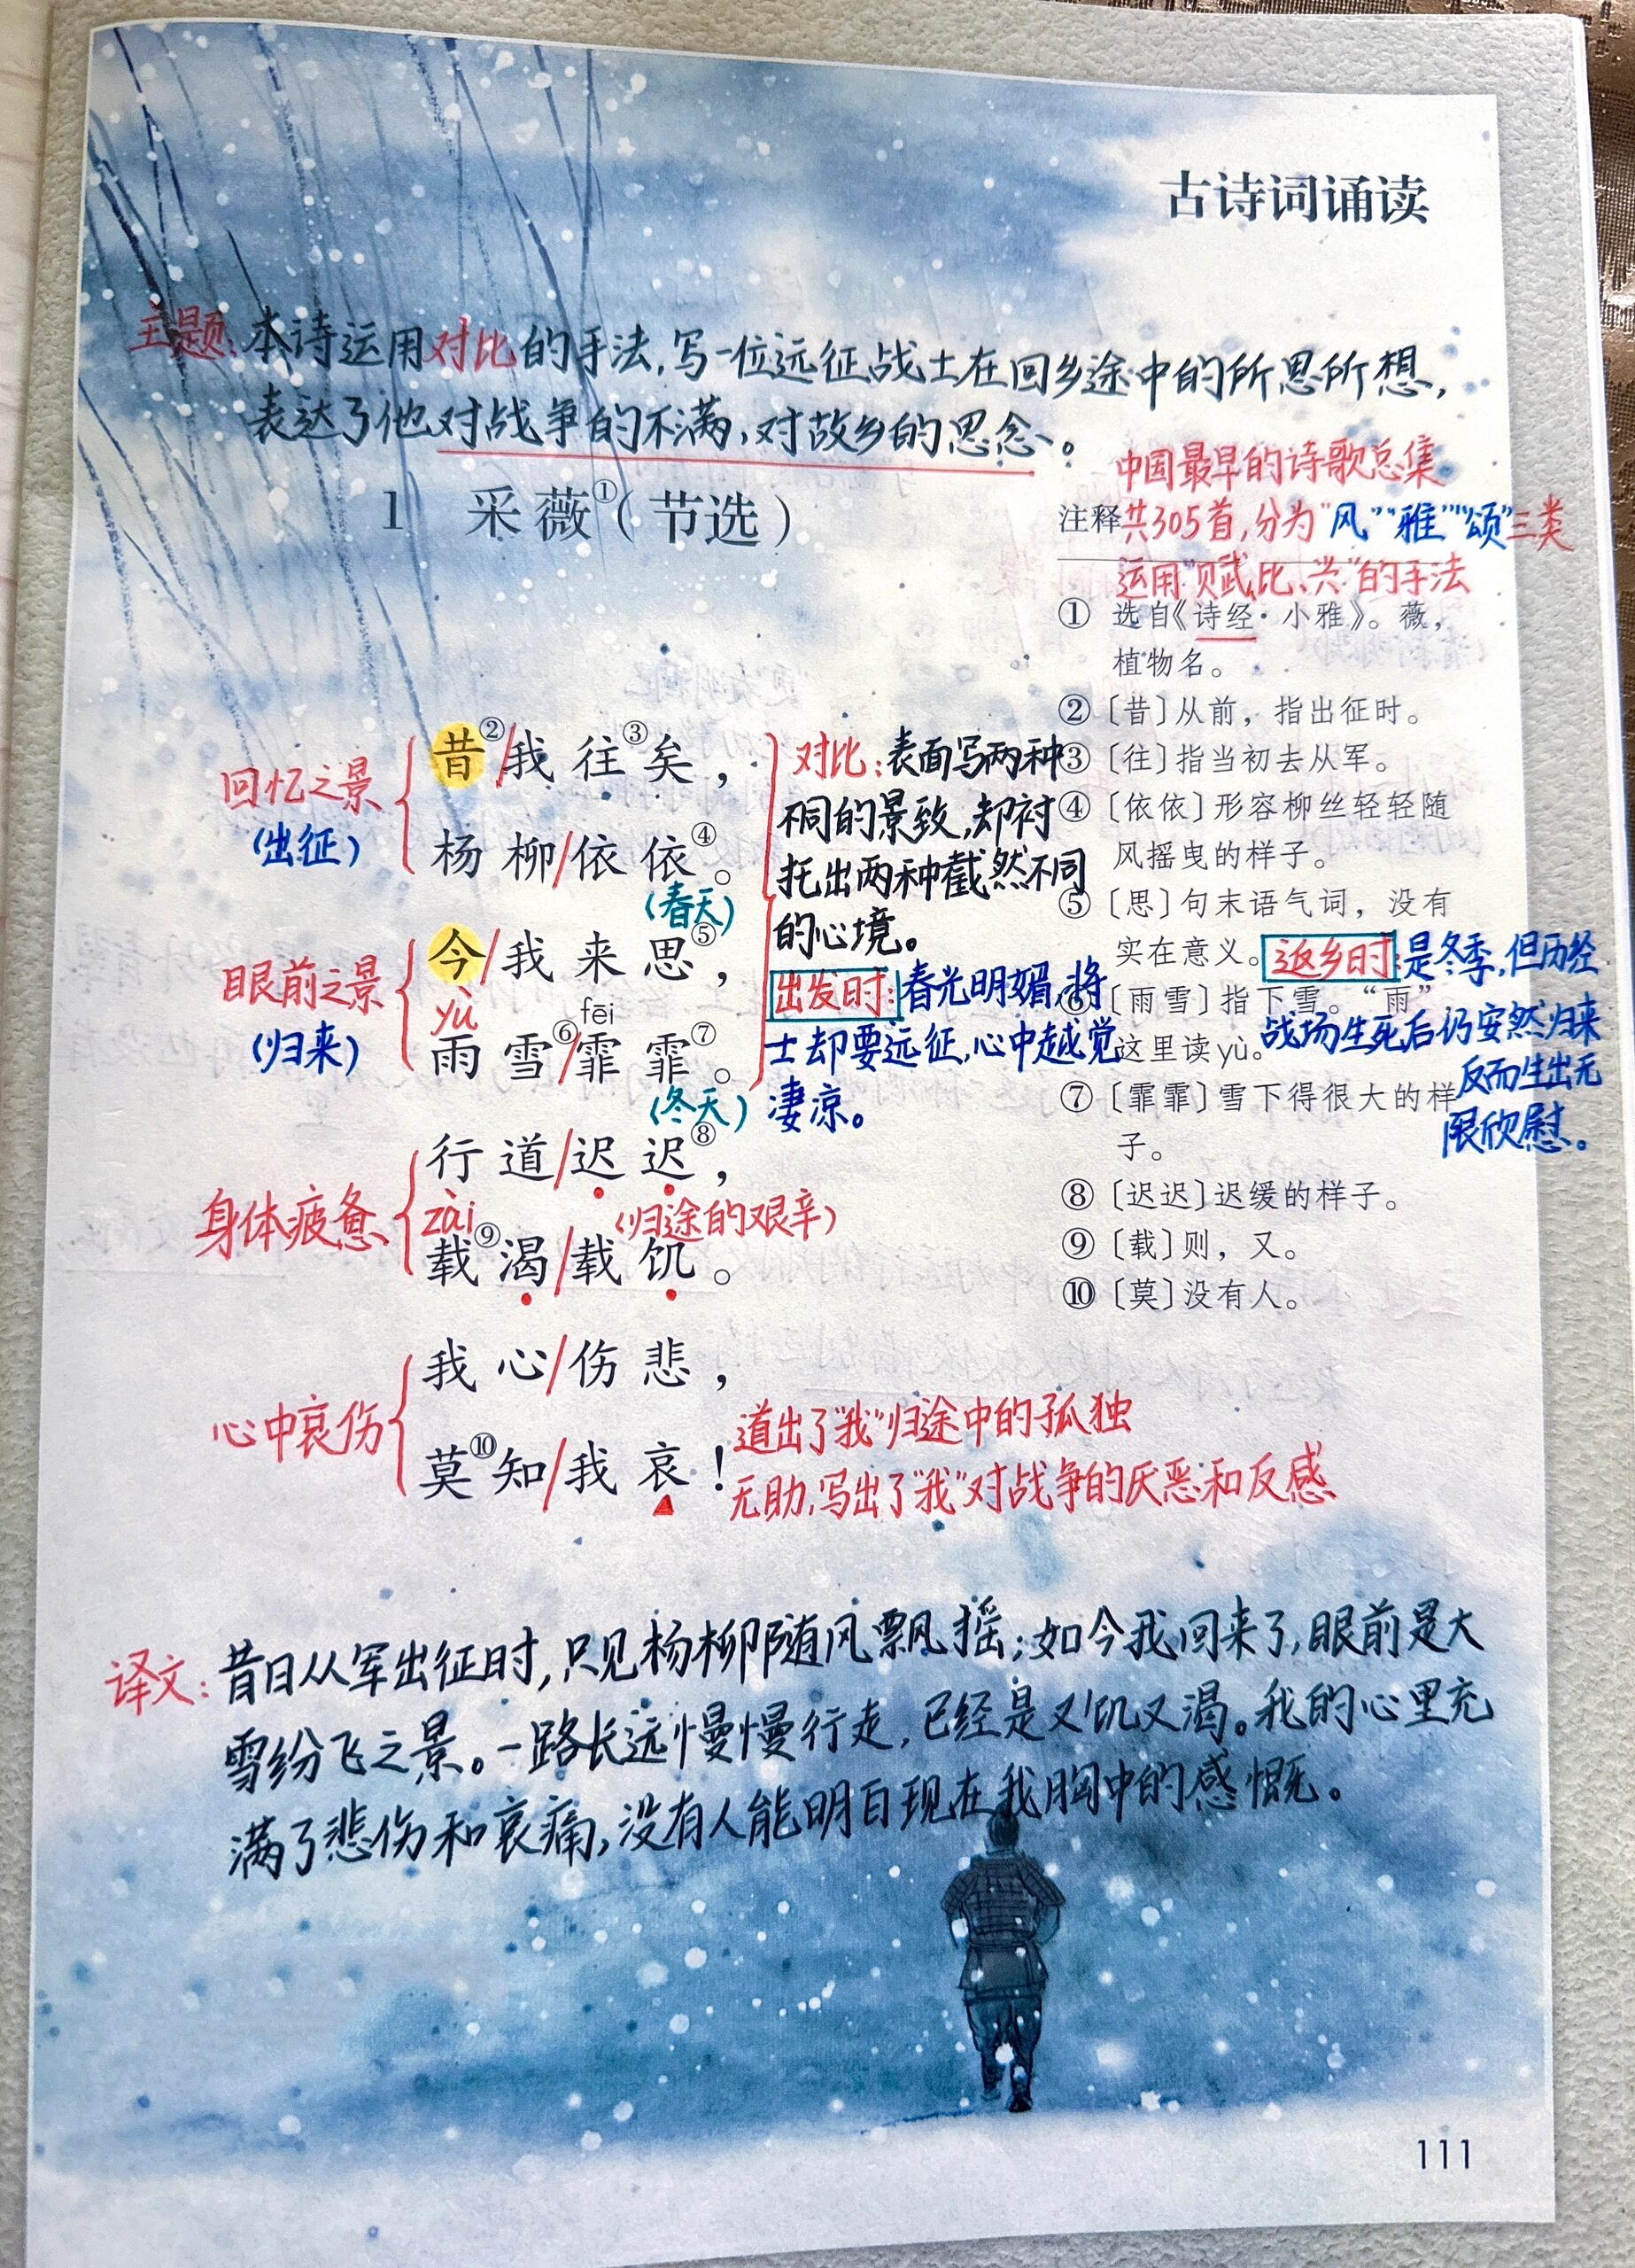 古诗词诵读
主题:本诗运用对比的手法,写一位远征战士在回乡途中的所思所想,
表达了他对战争的不满,对故乡的思念、。
1 采薇①(节选)
回忆之景
(出征)
昔②/我往③矣,
杨柳/依依④。
(春天)
眼前之景
(归来)
今/我来思⑤,
yù
fēi
雨雪⑥/霏霏⑦。
(冬天)
对比:表面写两种
不同的景致,却衬
托出两种截然不同
的心境。
出发时:春光明媚,将
士却要远征,心中越觉
凄凉。
身体疲惫
行道/迟迟⑧,
zài
(归途的艰辛)
载⑨渴/载饥。
心中哀伤
我心/伤悲,
莫⑩知/我哀!
道出了“我”归途中的孤独
无助,写出了“我”对战争的厌恶和反感
中国最早的诗歌总集
注释
共305首,分为“风”“雅”“颂”三类
运用“赋、比、兴”的手法
① 选自《诗经·小雅》。薇,
植物名。
② 〔昔〕从前,指出征时。
③ 〔往〕指当初去从军。
④ 〔依依〕形容柳丝轻轻随
风摇曳的样子。
⑤ 〔思〕句末语气词,没有
实在意义。
⑥ 〔雨雪〕指下雪。“雨”
这里读yù。
⑦ 〔霏霏〕雪下得很大的样
子。
⑧ 〔迟迟〕迟缓的样子。
⑨ 〔载〕则,又。
⑩ 〔莫〕没有人。
返乡时:是冬季,但历经
战场生死后仍安然归来
反而生出无
限欣慰。
译文:昔日从军出征时,只见杨柳随风飘摇;如今我回来了,眼前是大
雪纷飞之景。一路长远慢慢行走,已经是又饥又渴。我的心里充
满了悲伤和哀痛,没有人能明白现在我胸中的感慨。
111